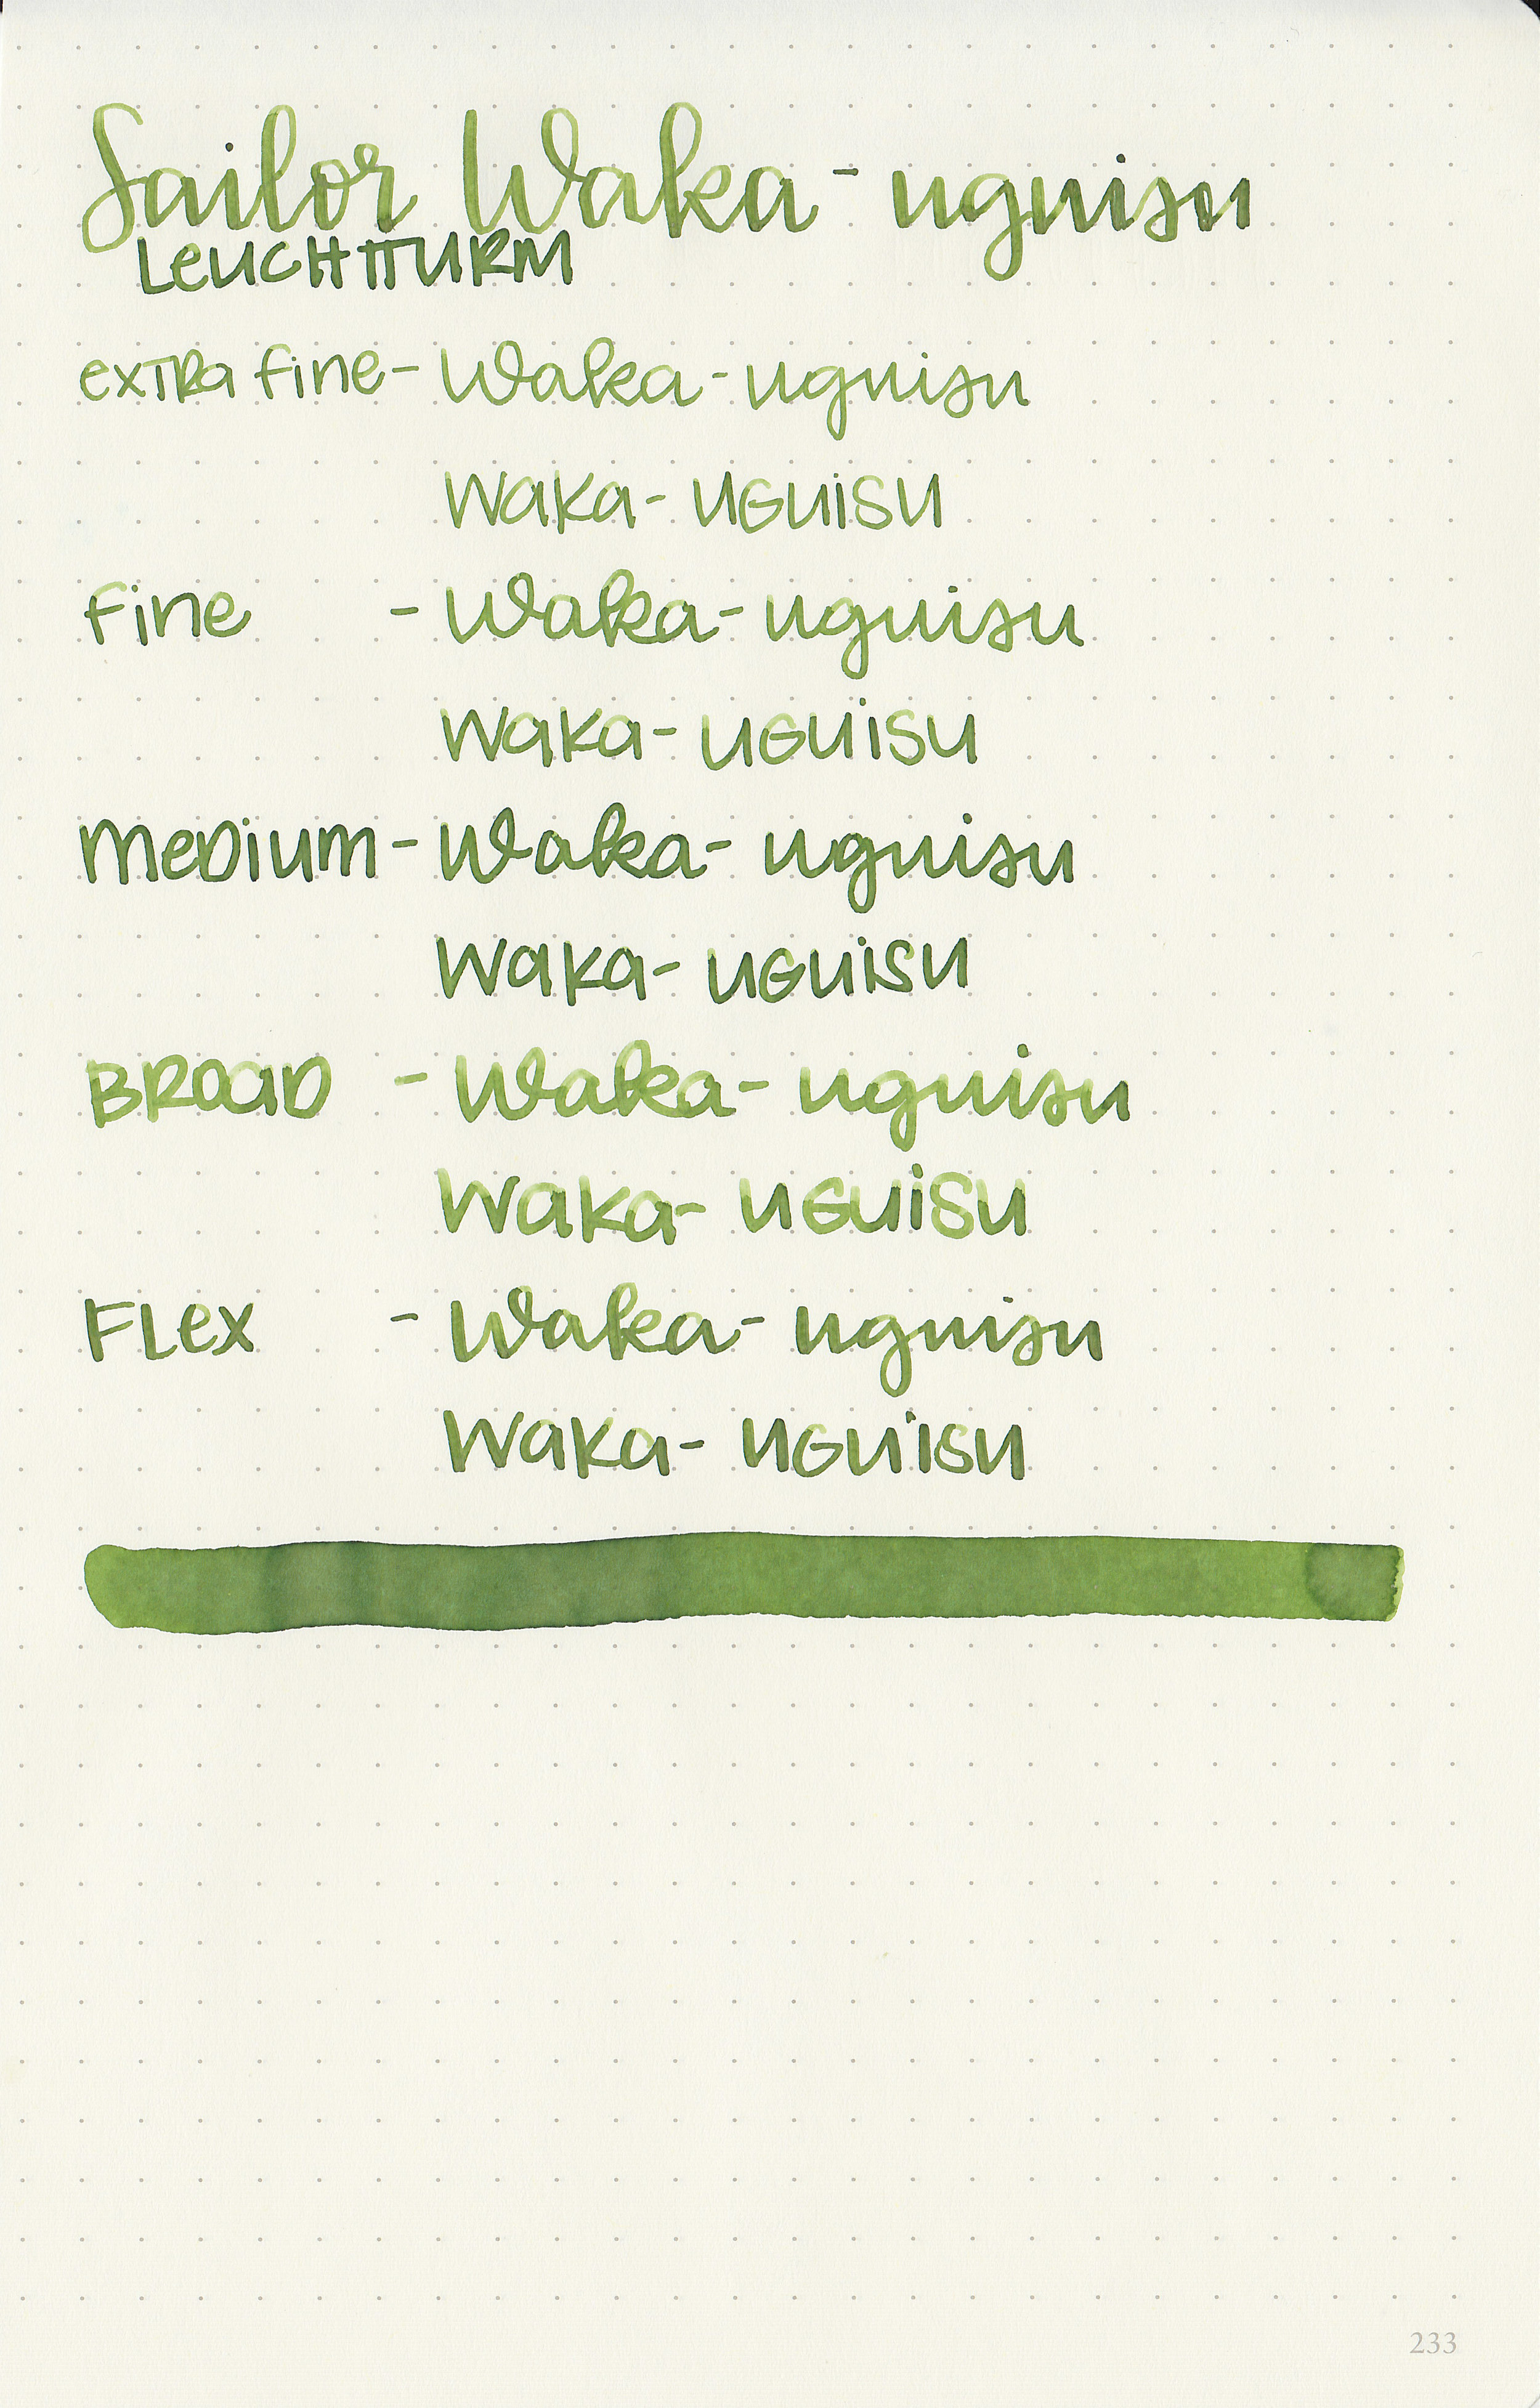 Sailor Waka-uguisu
LEUCHTTURM
extra fine - Waka-uguisu
Waka-uguisu
fine - Waka-uguisu
Waka-uguisu
Medium - Waka-uguisu
Waka-uguisu
Broad - Waka-uguisu
Waka-uguisu
Flex - Waka-uguisu
Waka-uguisu
233